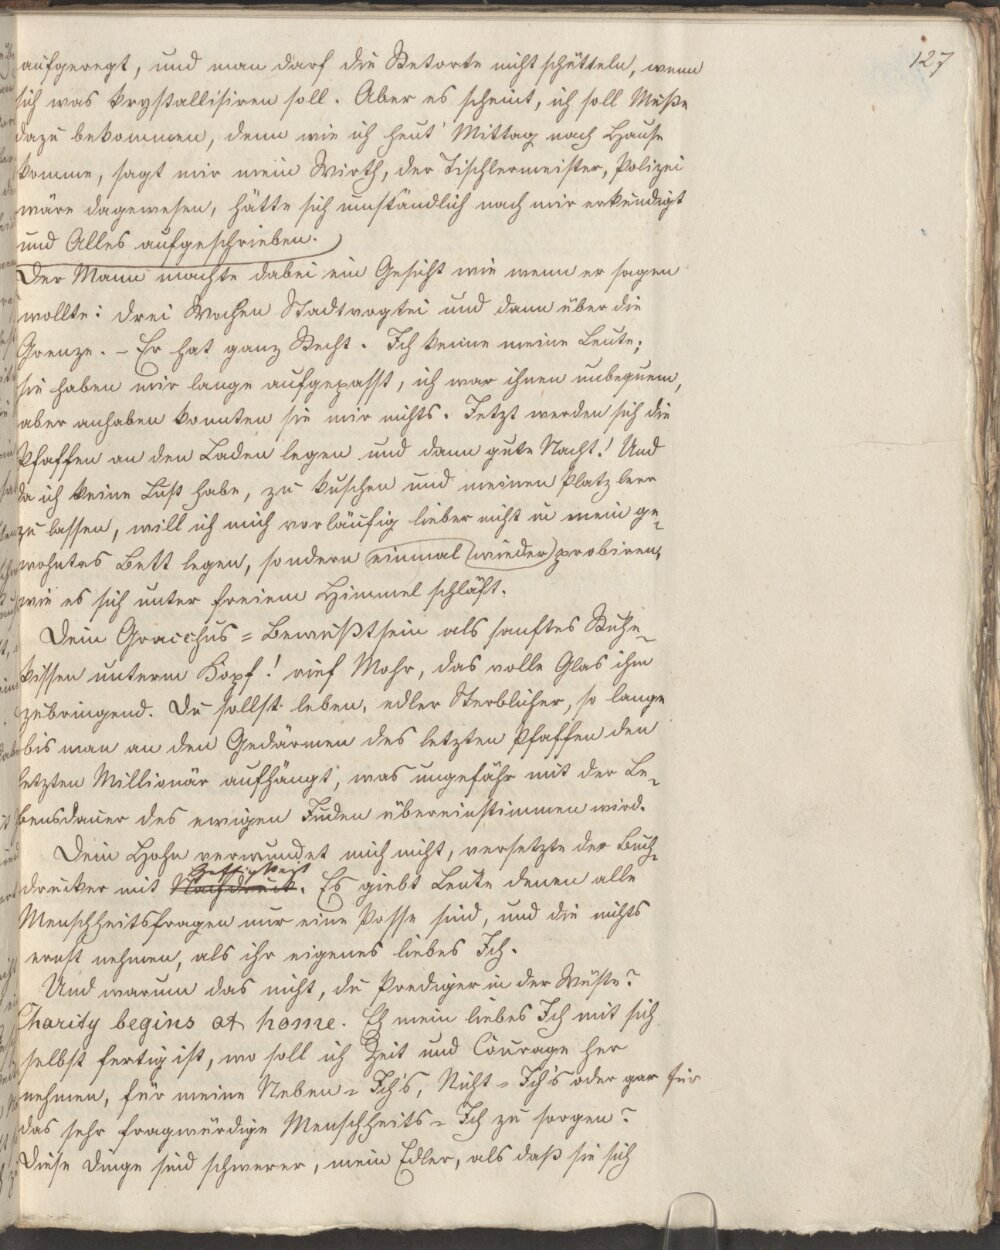 127
aufgeregt, und man darf die Retorte nicht schütteln, wenn
sich was krystallisiren soll. Aber es scheint, ich soll Muße
dazu bekommen, denn wie ich heut' Mittag nach Hause
komme, sagt mir mein Wirth, der Tischlermeister, Polizei
wäre dagewesen, hätte sich umständlich nach mir erkundigt
und Alles aufgeschrieben.
Der Mann machte dabei ein Gesicht wie wenn er sagen
wollte: drei Wochen Stadtvogtei und dann über die
Grenze. – Er hat ganz Recht. Ich kenne meine Leute;
sie haben mir lange aufgepasst, ich war ihnen unbequem,
aber anhaben konnten sie mir nichts. Jetzt werden sich die
Pfaffen an den Laden legen und dann gute Nacht! Und
da ich keine Lust habe, zu kuschen und meinen Platz leer
zu lassen, will ich mich vorläufig lieber nicht in mein ge-
wohntes Bett legen, sondern einmal wieder probiren,
wie es sich unter freiem Himmel schläft.
Dein Gracchus-Bewußtsein als sanftes Ruhe-
kissen unterm Kopf! rief Mohr, das volle Glas ihm
zubringend. Du sollst leben, edler Sterblicher, so lange
bis man an den Gedärmen des letzten Pfaffen den
letzten Millionär aufhängt, was ungefähr mit der Le-
bensdauer des ewigen Juden übereinstimmen wird.
Dein Hohn verwundet mich nicht, versetzte der Buch-
drucker mit Nachdruck Heftigkeit. Es giebt Leute denen alle
Menschheitsfragen nur eine Posse sind, und die nichts
ernst nehmen, als ihr eigenes liebes Ich.
Und warum das nicht, du Prediger in der Wüste?
Charity begins at home. Eh mein liebes Ich mit sich
selbst fertig ist, wo soll ich Zeit und Courage her
nehmen, für meine Neben-Ich's, Nicht-Ich's oder gar für
das sehr fragwürdige Menschheits-Ich zu sorgen?
Diese Dinge sind schwerer, mein Edler, als daß sie sich